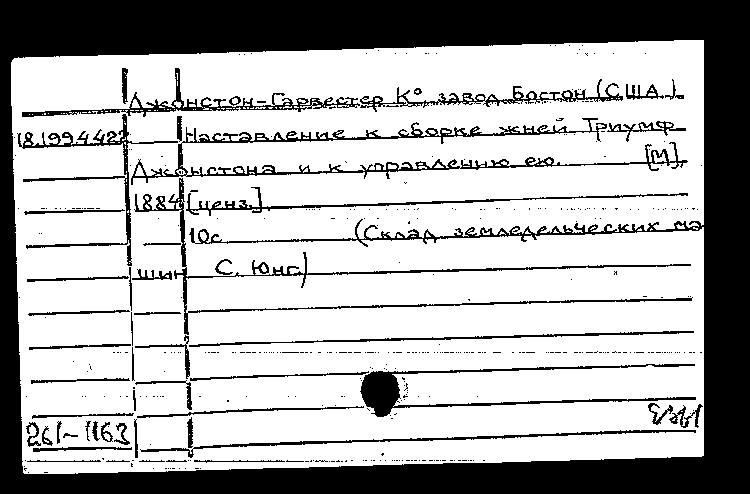 Джонстон-Гарвестер К°, завод Бостон (США)
18.1994422 Наставление к сборке жней Триумф
Джонстона и к управлению ею. [М],
1884 [ценз.].
10с (Склад земледельческих ма
шин С. Юнг)
261-1163